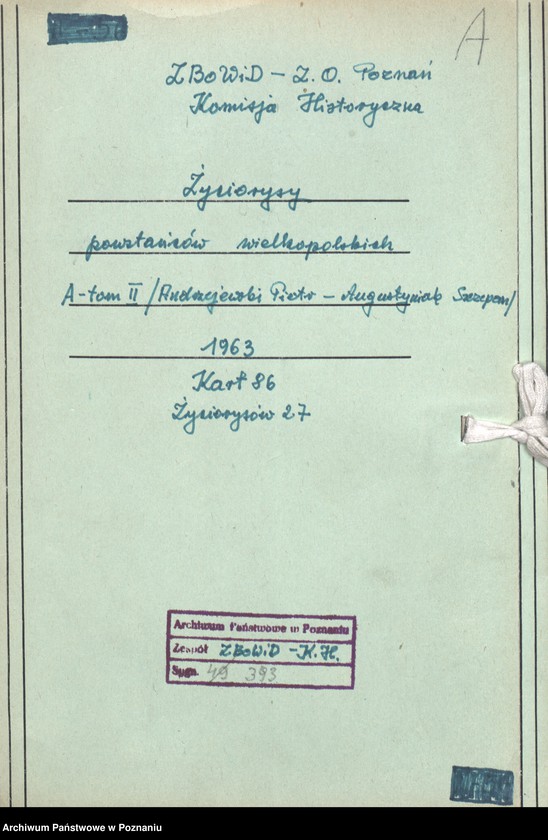 A
ZBoWiD – Z. O. Poznań
Komisja Historyczna
Życiorysy
powstańców wielkopolskich
A-tom II /Andrzejewski Piotr – Augustyniak Szczepan/
1963
Kart 86
Życiorysów 27
Archiwum Państwowe w Poznaniu
Zespół ZBoWiD – K.H.
Sygn. 49 393
Archiwum Państwowe w Poznaniu